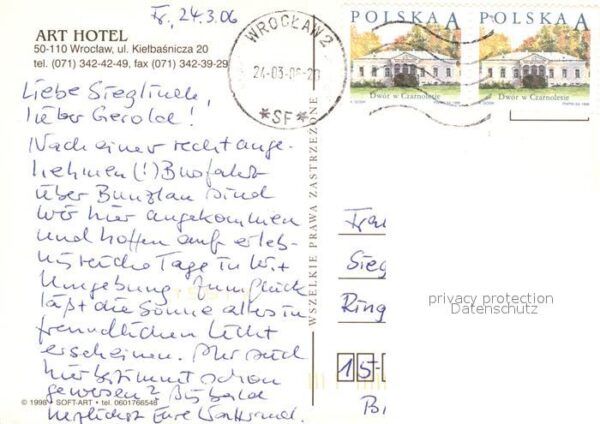 Fr, 24.3.06
ART HOTEL
50-110 Wrocław, ul. Kiełbaśnicza 20
tel. (071) 342-42-49, fax (071) 342-39-29
Liebe Sieglinde,
lieber Gerold!
Nach einer recht ange-
nehmen (!) Busfahrt
über Bunzlau sind
wir hier angekommen
und hoffen auf erleb-
nisreiche Tage in W. +
Umgebung. Zum Glück
läßt die Sonne alles in
freundlichem Licht
erscheinen. Ihr seid
hier bestimmt schon
gewesen? Bis bald
herzlichst Eure
© 1998 SOFT-ART • tel. 0601766546
WSZELKIE PRAWA ZASTRZEŻONE
WROCŁAW 2
24-03-06-20
* SF *
POLSKA A
Dwór w Czarnolesie
POLSKA A
Dwór w Czarnolesie
Frau
Sieg
Ring
15-
privacy protection
Datenschutz